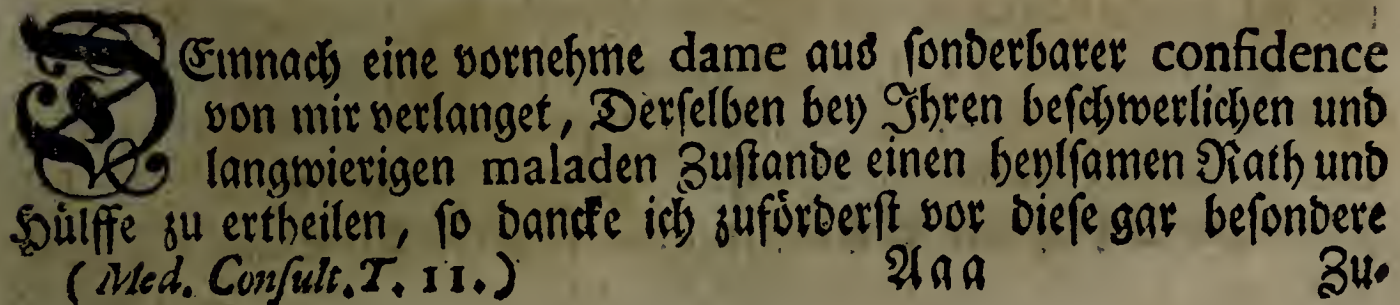 DEmnach eine vornehme dame aus ſonderbarer confidence
von mir verlanget, Derſelben bey Ihren beſchwerlichen und
langwierigen maladen Zuſtande einen heylſamen Rath und
Hülffe zu ertheilen, ſo dancke ich zuförderſt vor dieſe gar beſondere
(Med. Conſult. T. II.) Aaa Zu-